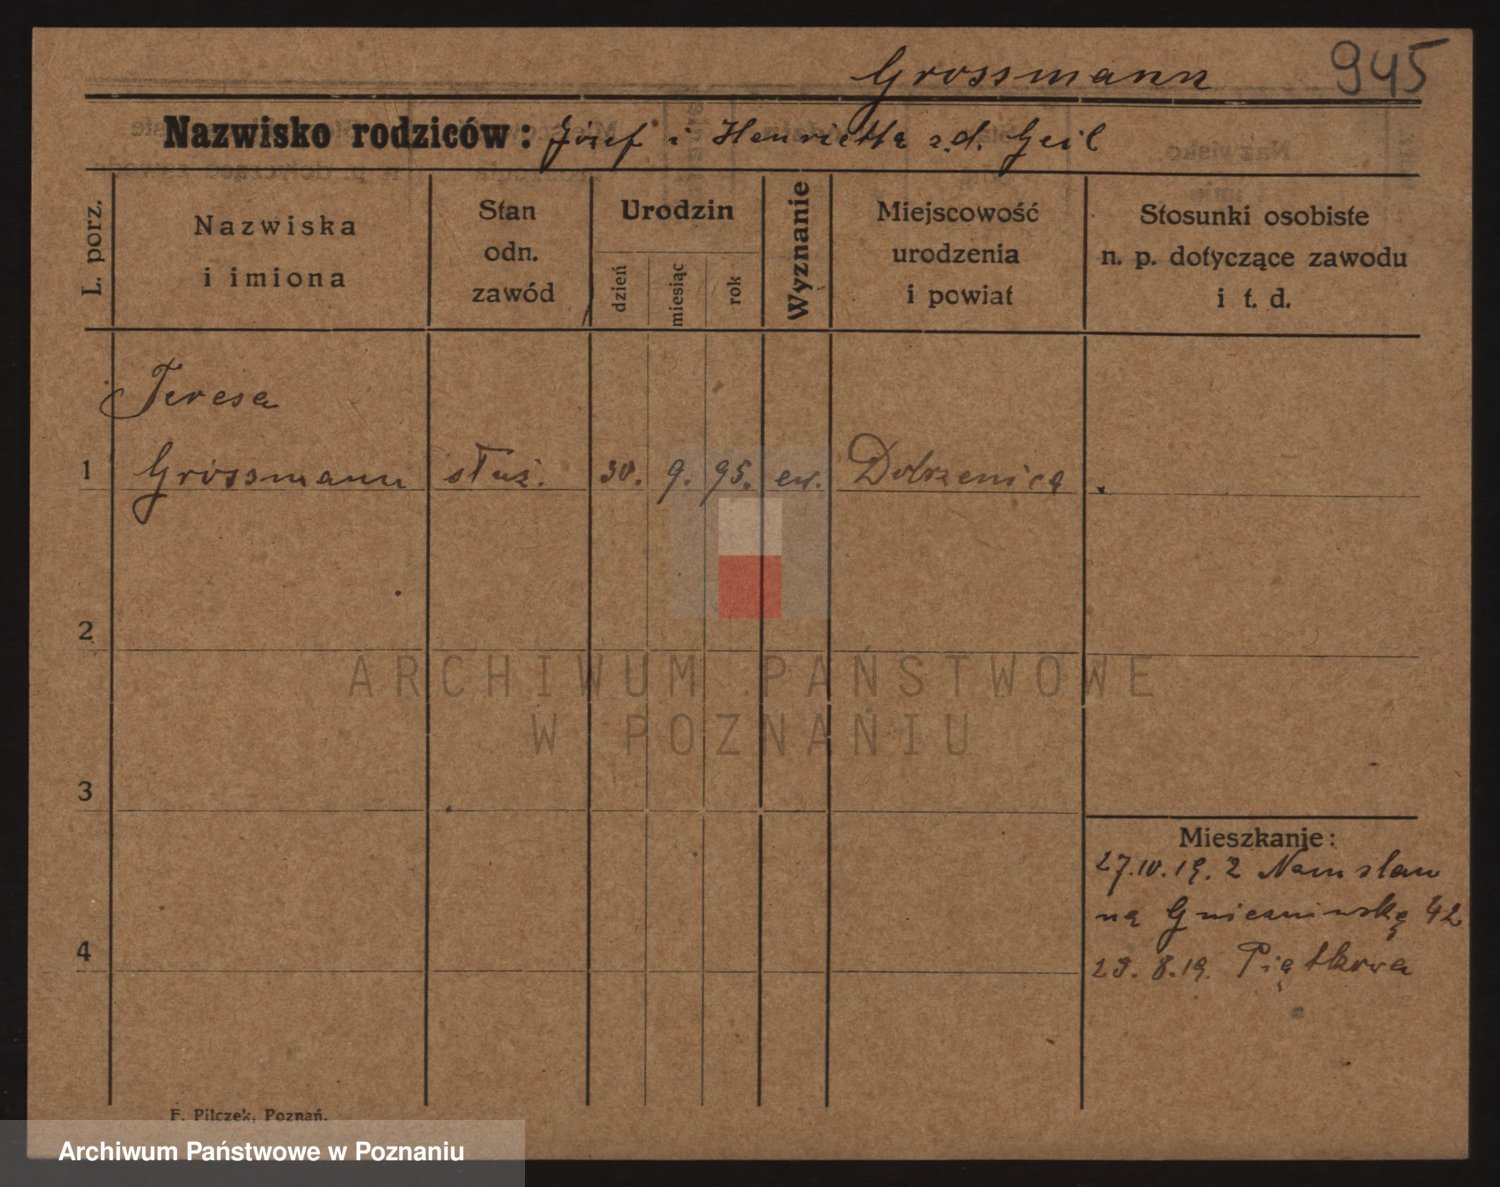 Grossmann 945
Nazwisko rodziców: Józef i Henrietta z.d. Geil
L. porz.
Nazwiska
i imiona
Stan
odn.
zawód
Urodzin
dzień
miesiąc
rok
Wyznanie
Miejscowość
urodzenia
i powiat
Stosunki osobiste
n. p. dotyczące zawodu
i t. d.
Teresa
1 Grossmann służ. 30. 9. 95. ew. Dobrzenica
2
ARCHIWUM PAŃSTWOWE
W POZNANIU
3
Mieszkanie:
27.10.19. z Namslau
na Gnieźnieńską 42
4
29. 8.19. Piątkowa
F. Pilczek, Poznań.
Archiwum Państwowe w Poznaniu